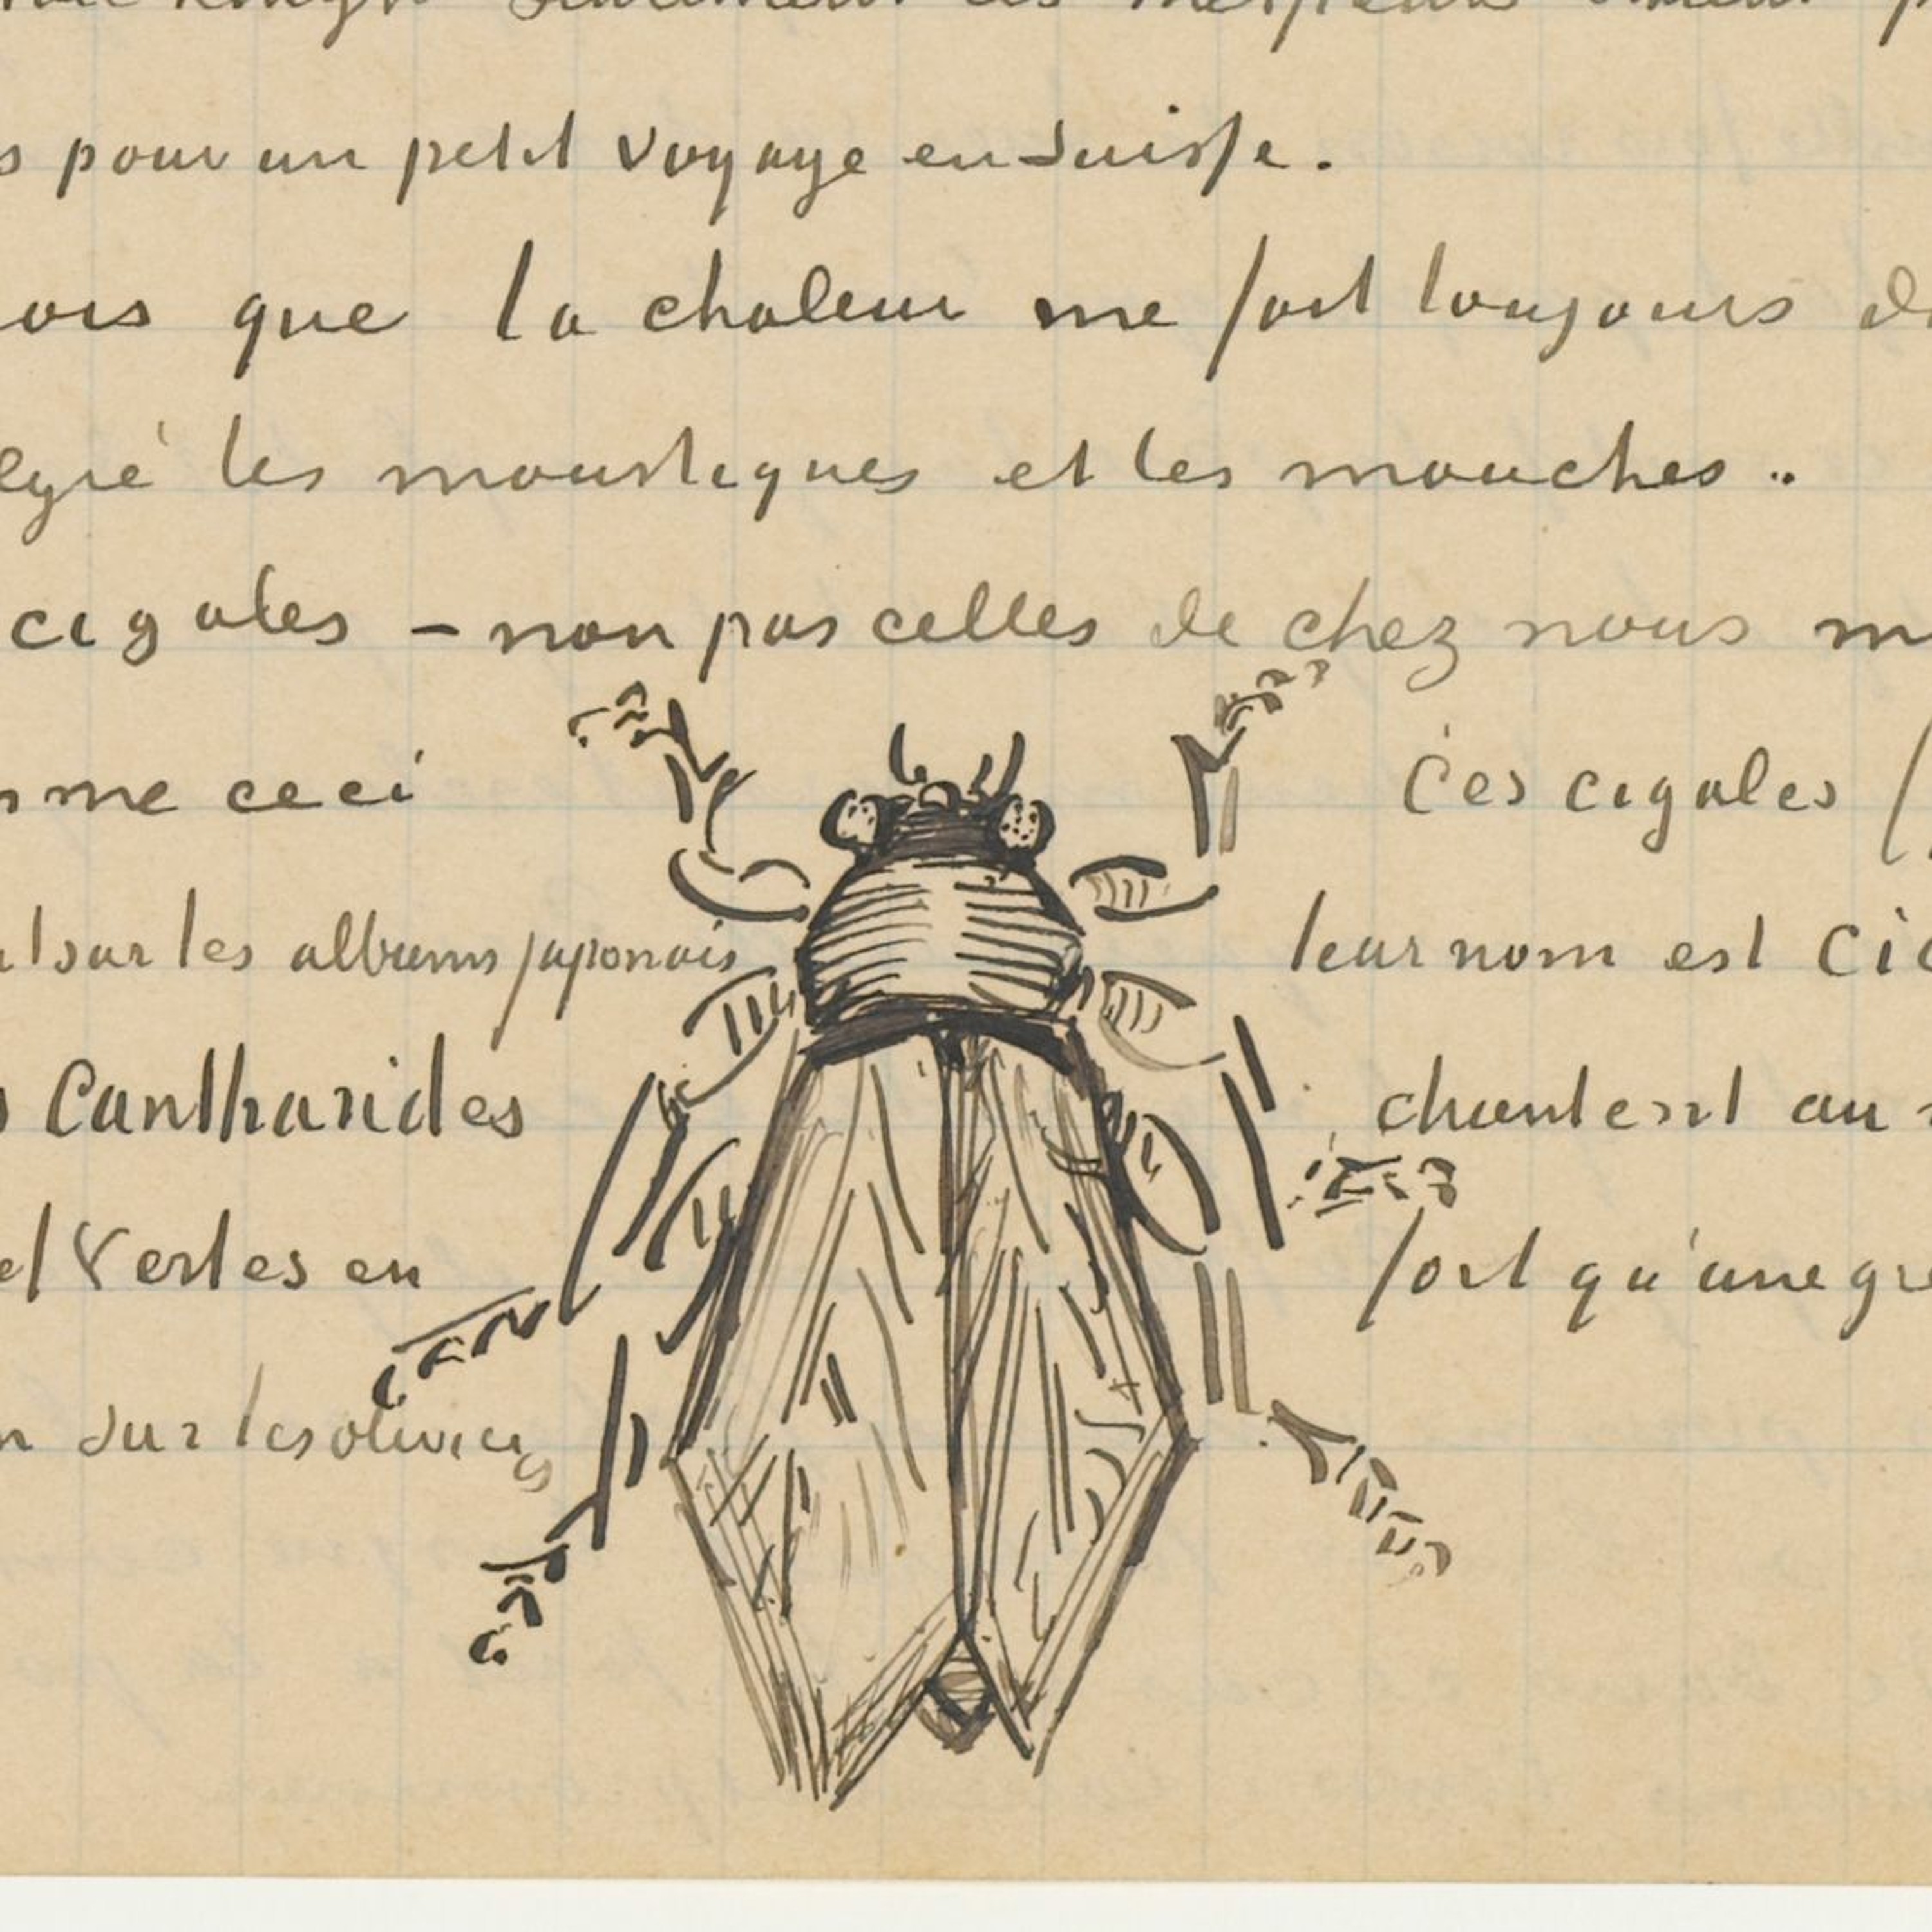 pour un petit voyage en Suisse.
que la chaleur me fait toujours
les moustiques et les mouches ..
cigales – non pas celles de chez nous
me ceci
Ces cigales
sur les albums japonais
leur nom est
Cantharides
chantent au
Vertes en
fort qu'une
sur les oliviers